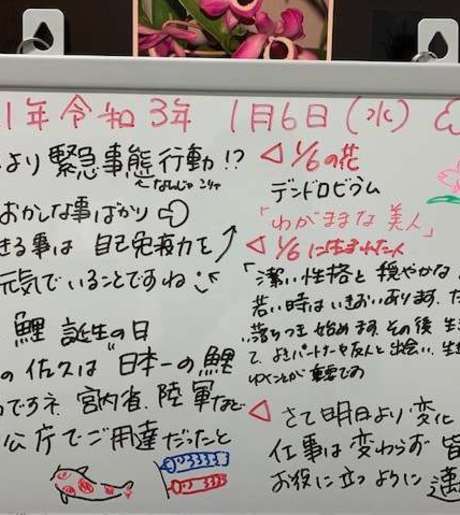 1年 令和3年 1月6日(水)
より 緊急事態行動!?
←なんじゃ こりゃ
おかしな事ばかり
きる事は 自己免疫力を
元気でいることですね
鯉 誕生の日
の 佐久は "日本一の鯉
のでうネ 宮内省、陸軍など
公庁でご用達だったと
◁ 1/6の花
デンドロビウム
「わがままな美人」
◁ 1/6に生まれた人
「潔い性格と 穏やかな
若い時は いきおいあります。た
落ちつき始めます。その後 生
て、よきパートナーや友人と出会い、生
ゆくことが 重要です
◁ さて明日より 変化
仕事は 変わらず 皆
お役に立つように 邁